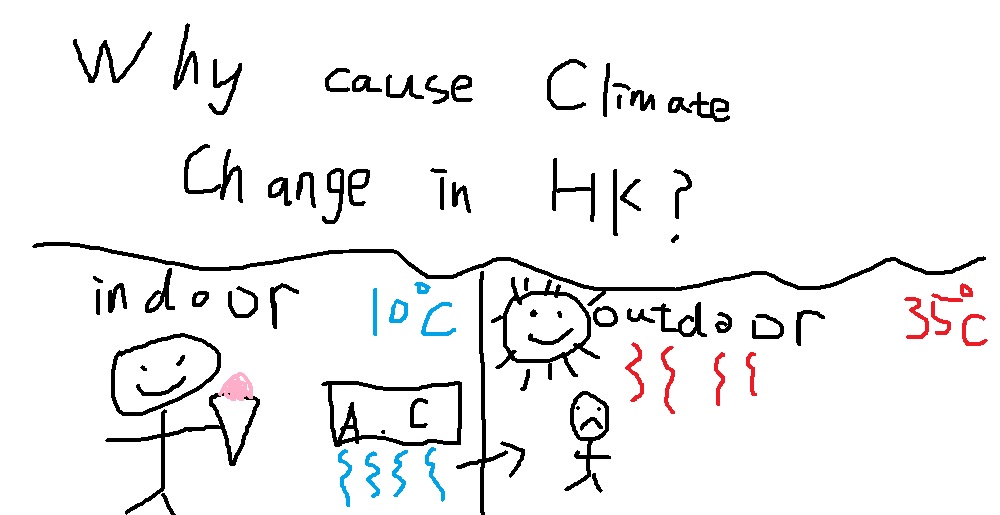 Why cause Climate
Change in HK?
indoor 10°C
outdoor 35°C
A.C